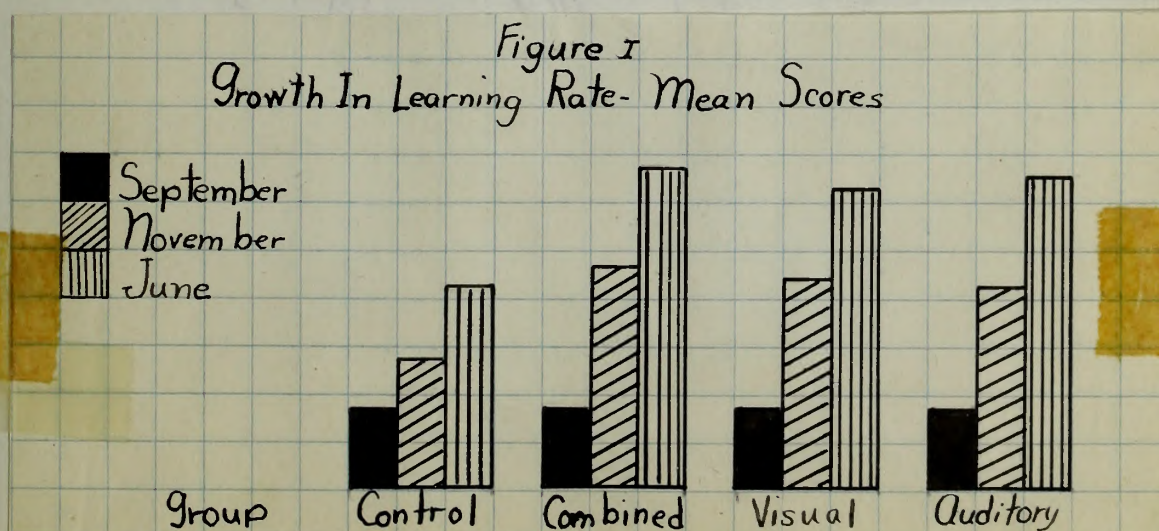 Figure I
Growth In Learning Rate- Mean Scores
September
November
June
Group Control Combined Visual Auditory